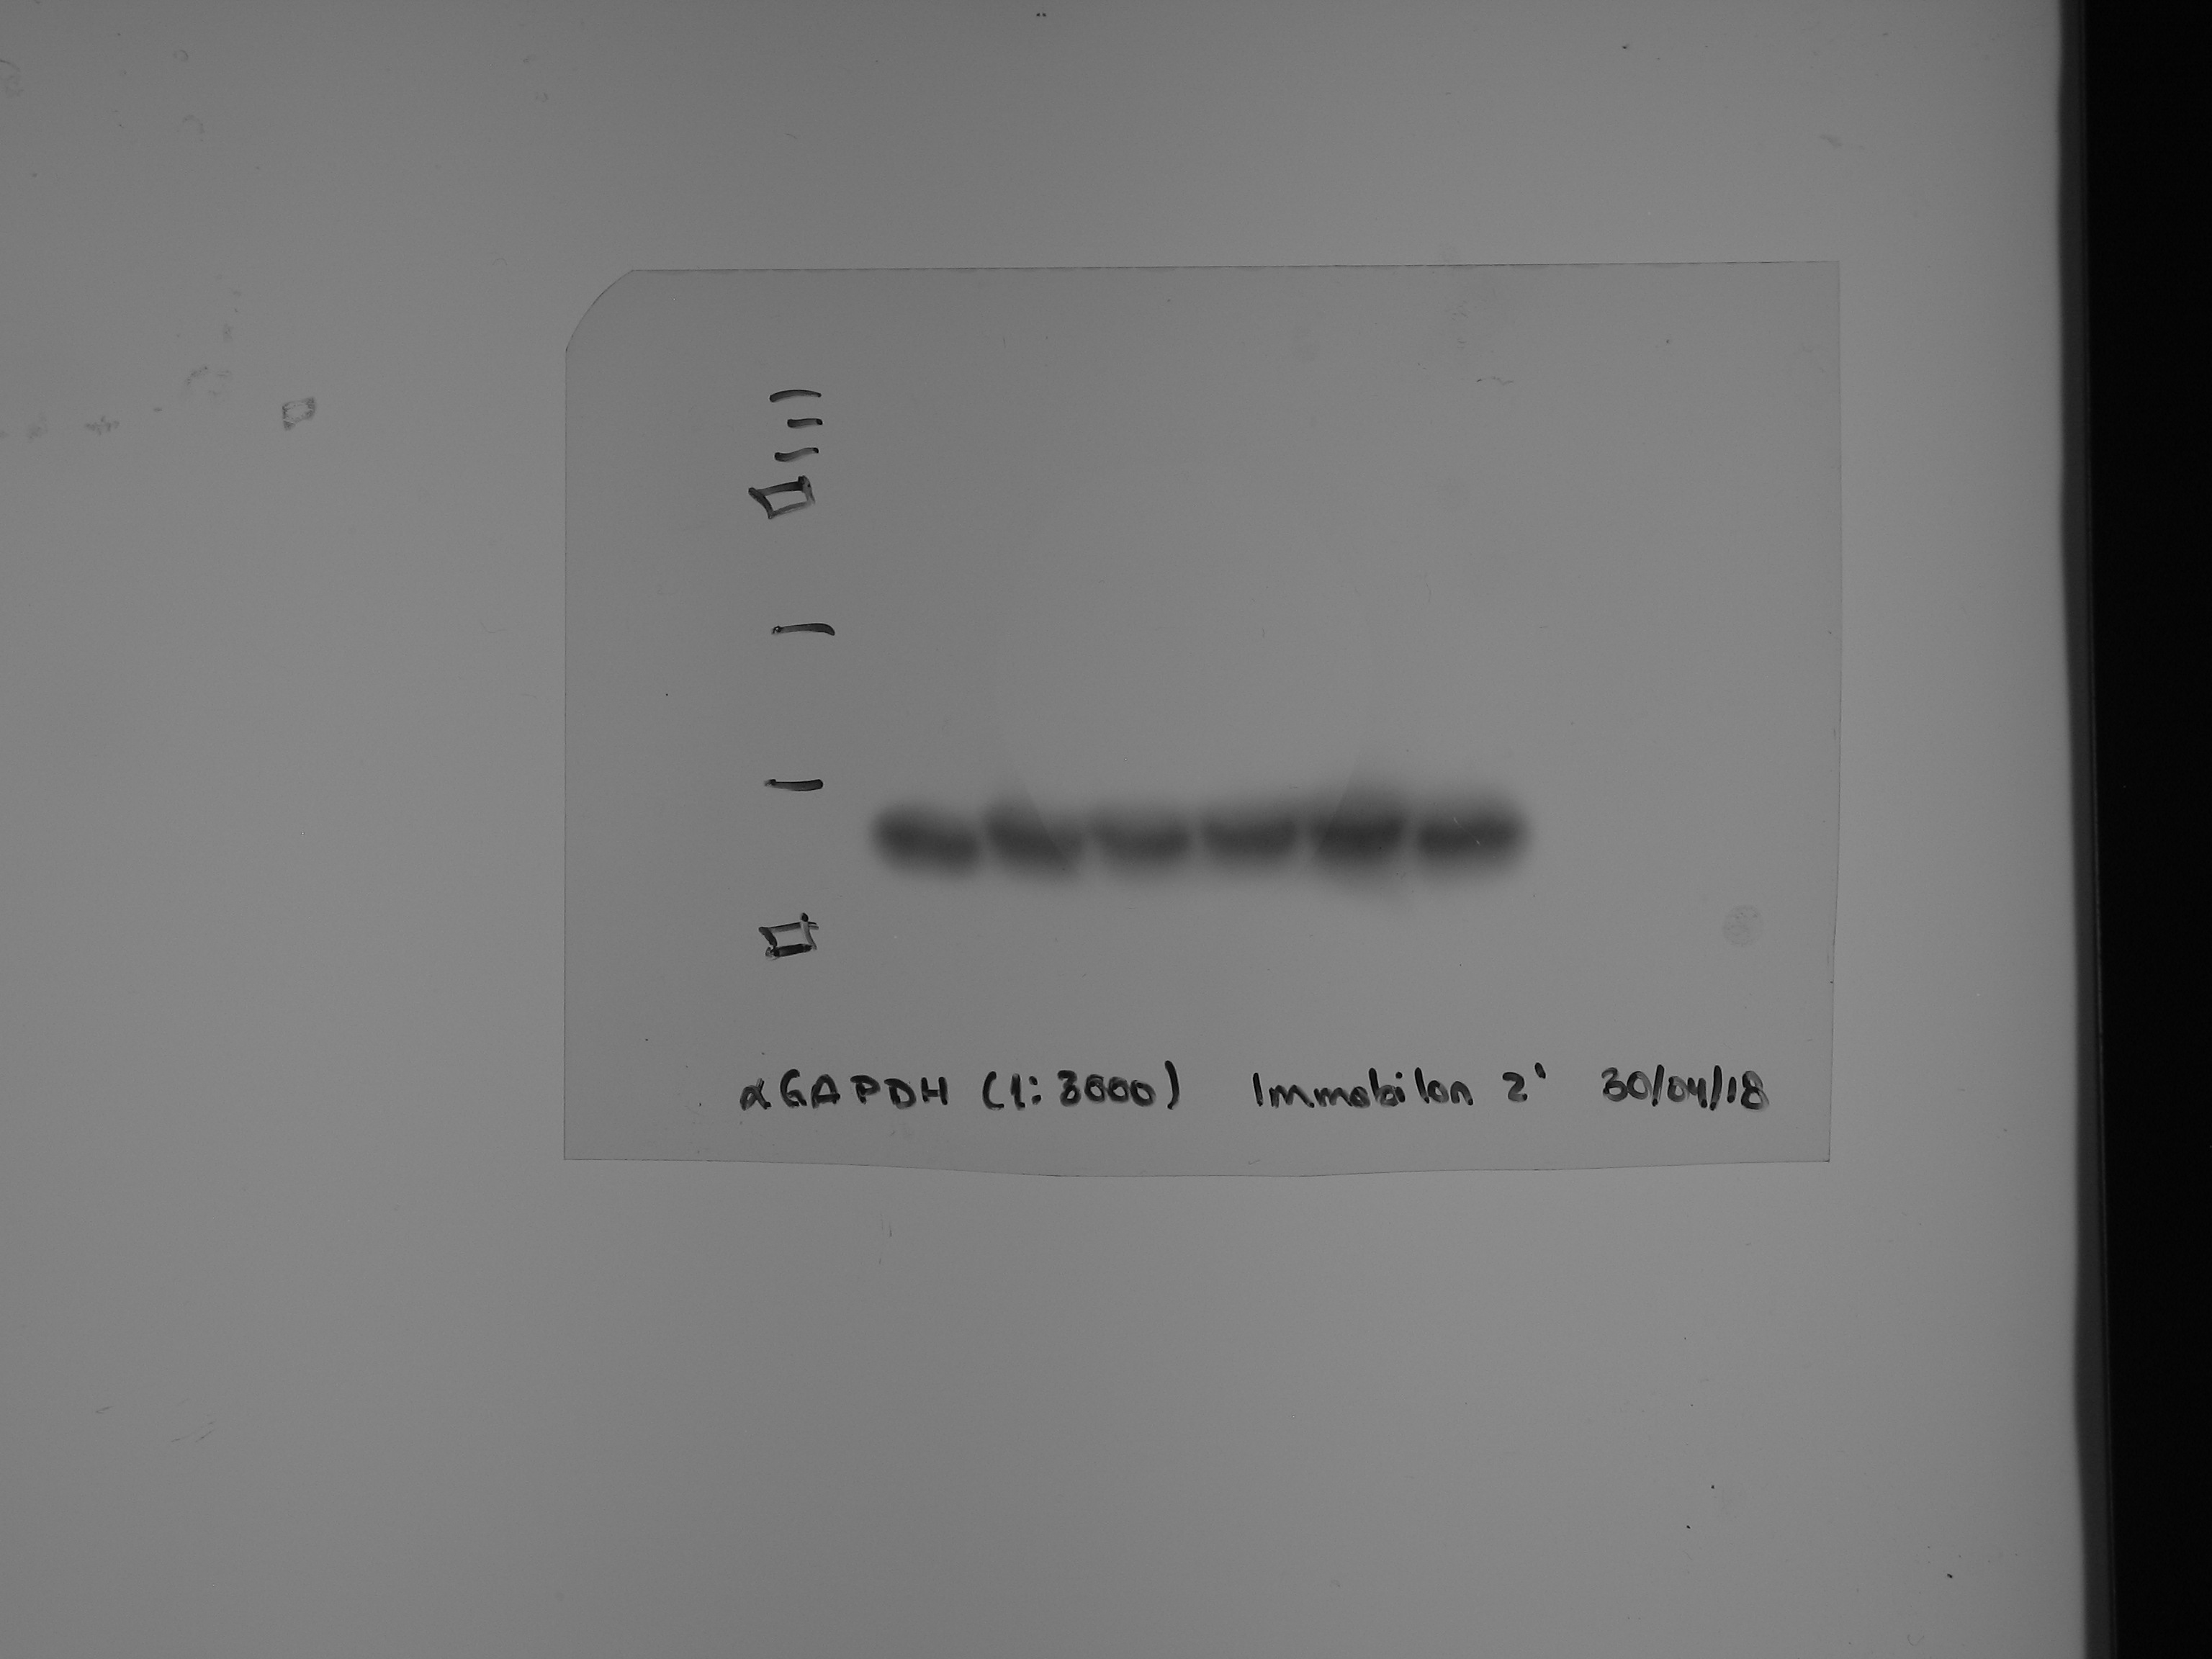 αGAPDH (1:3000) Immobilon 2' 30/04/18